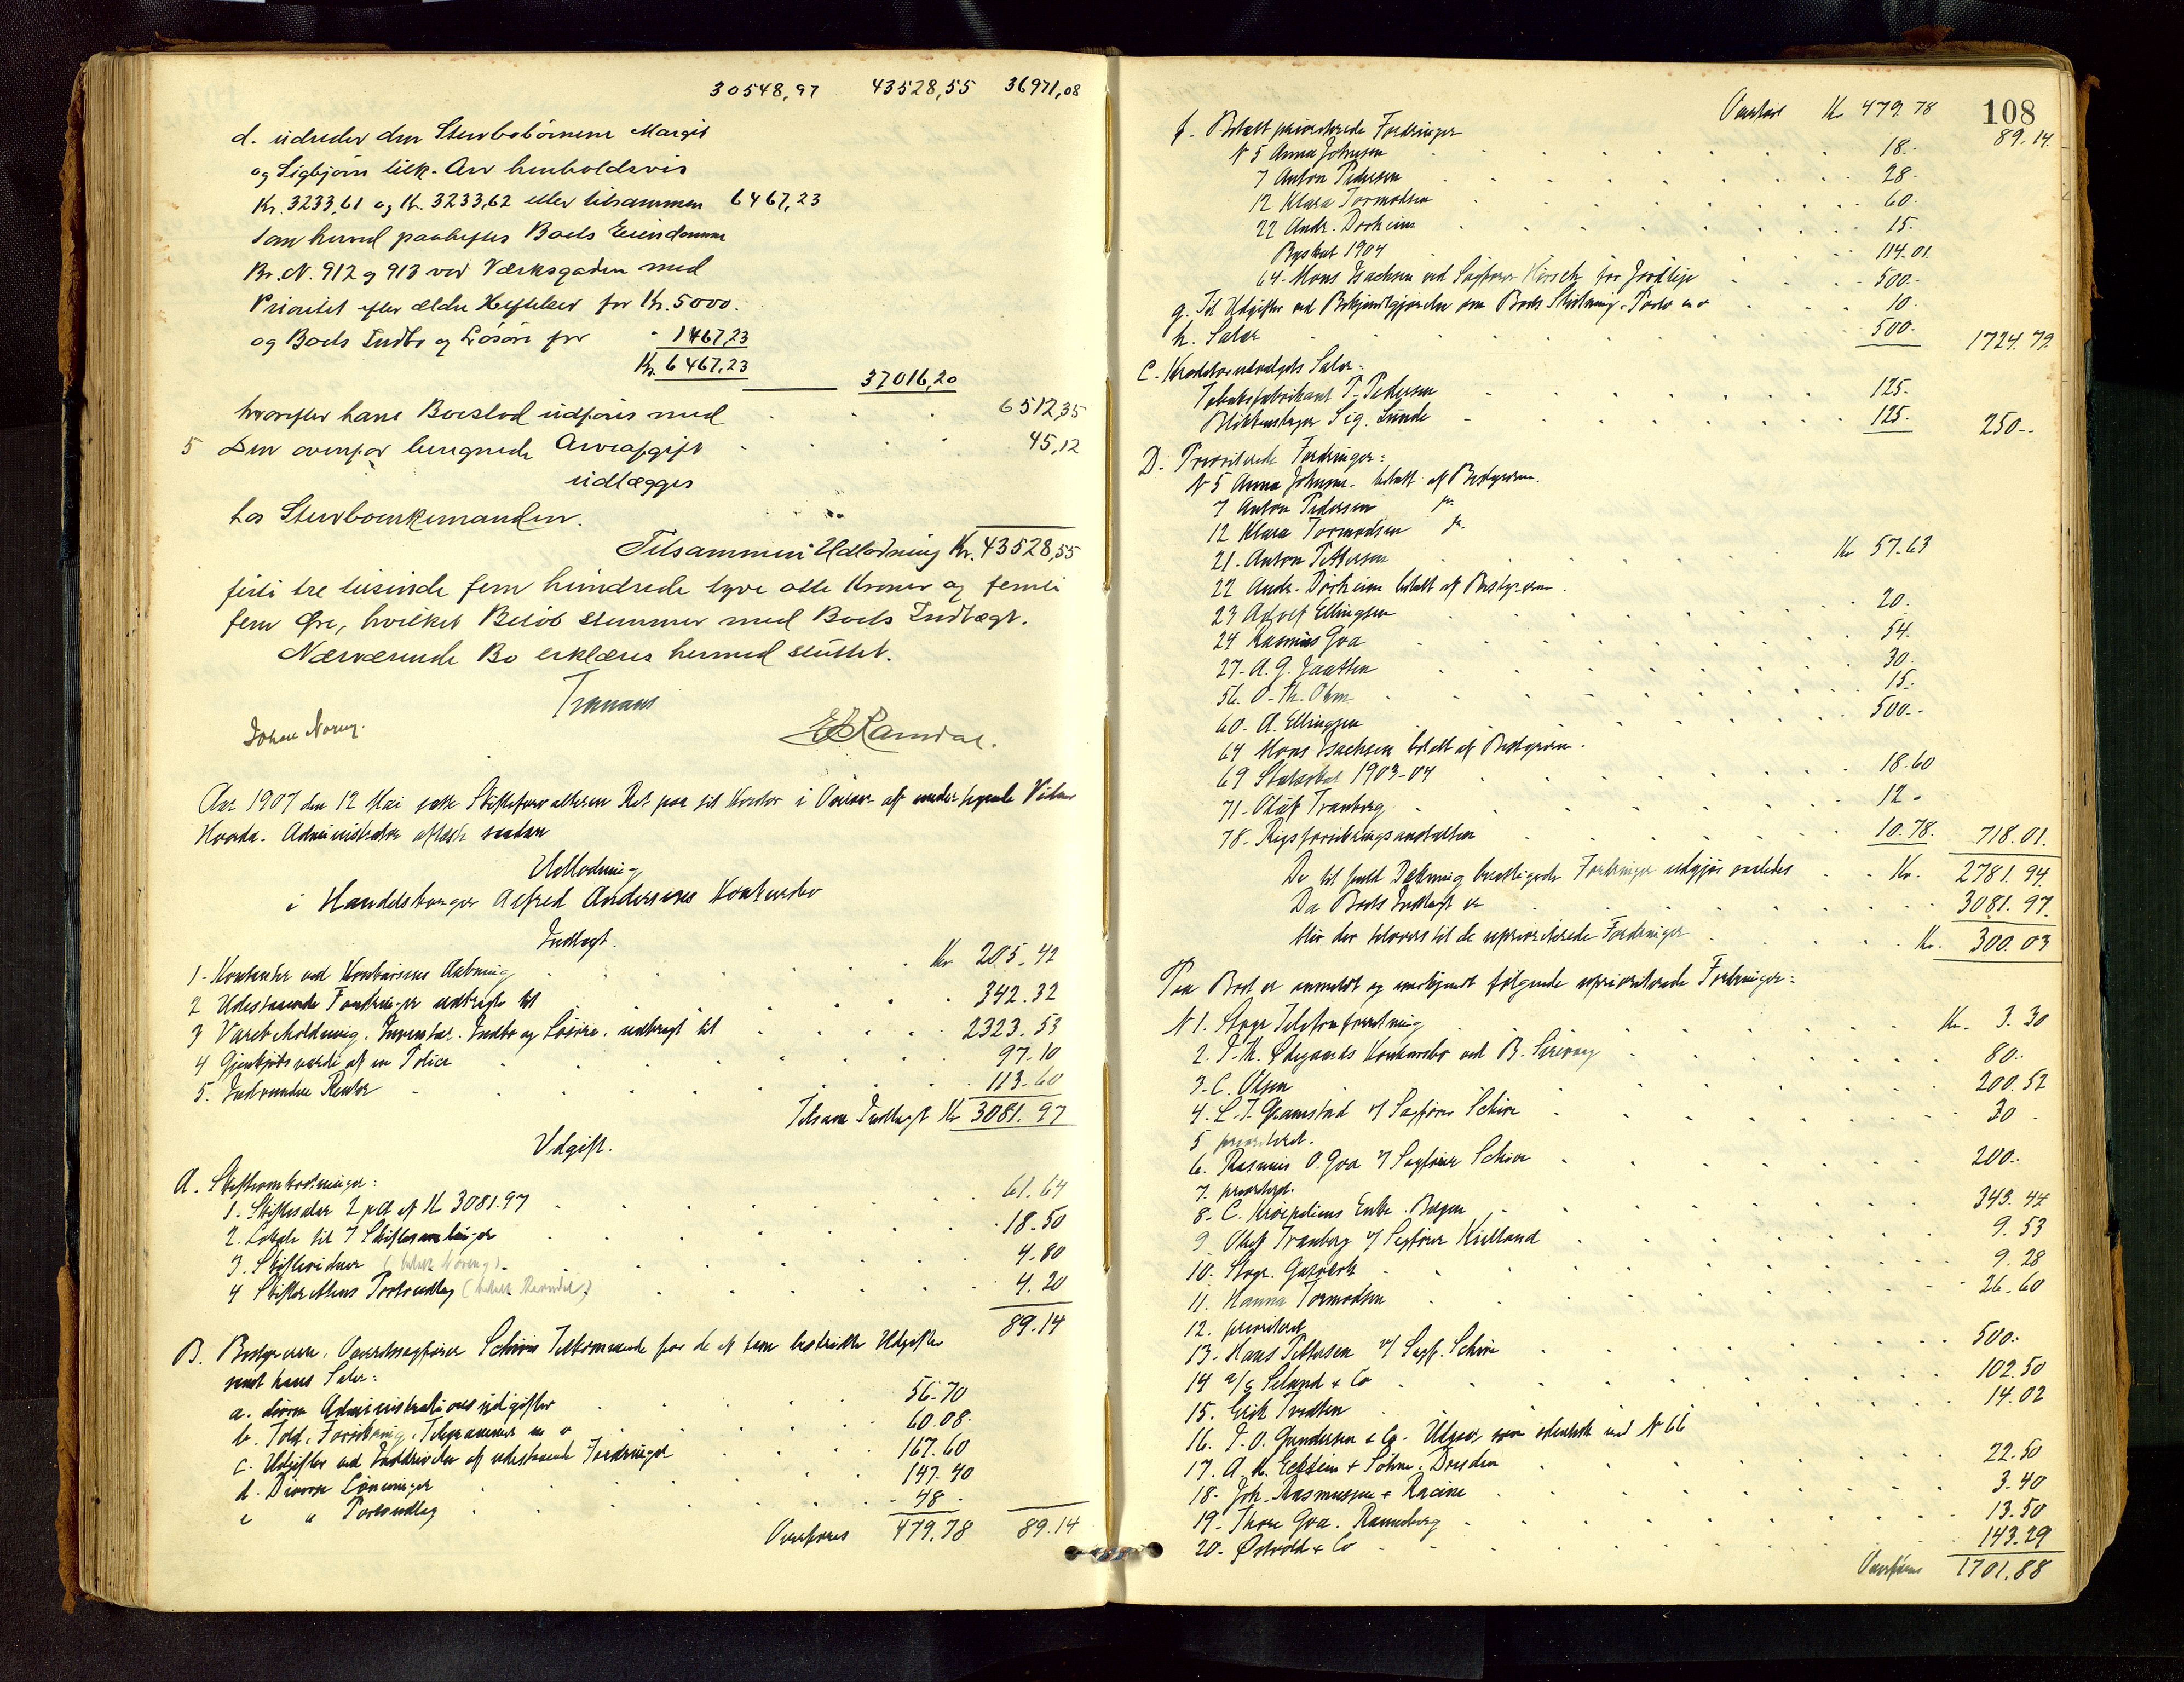 30548,97 43528,55 36971,08
d. udreder den Stervbobörnene Margit
og Sigbjörn tilk. Arv henholdsvis
Kr. 3233,61 og Kr. 3233,62 eller tilsammen 6467,23
som herved paaheftes Boets Eiendomme
Br. N. 912 og 913 ved Værksgaden med
Prioritet efter ældre Heftelser for Kr. 5000.
og Boets Indbo og Lösöre for " 1467,23
Kr. 6467,23
37016,20
hvorefter hans Boeslod udföres med 6512,35
5 Den ovenfor beregnede Arveafgift 45,12
udlægges
hos Stervboenkemanden.
Tilsammen Udlodning Kr. 43528,55
firti tre tusinde fem hundrede tyve otte Kroner og femti
fem Øre, hvilket Belöb stemmer med Boets Indtægt.
Nærværende Bo erklæres hermed sluttet.
Tranaas
Johan Noreng. E Ramdal.
Aar 1907 den 12 Mai satte Skifteforvalteren Ret paa sit Kontor i Overvær af undertegnede Vidner
Hvorda. Administrator aflagde saadan
Udlodning
i Handelsborger Alfred Andersens Konkursbo
Indtægt.
1. Kontanter ved Konkursens Aabning Kr 205.42
2 Udestaaende Fordringer indbragte til 342.32
3 Varebeholdning. Inventar. Indbo og Lösöre. indbragt til 2323.53
4 Gjenkjöbsværdi af en Police 97.10
5. Indvundne Renter 113.60
Tilsam Indtægt Kr 3081.97
Udgift.
A. Skifteomkostninger:
1. Skiftesalær 2 pct af Kr 3081.97 61.64
2. Lokale til 7 Skiftesamlinger 18.50
3. Skiftevidner (betalt Noreng) 4.80
4 Skifterettens Portoudlæg (betalt Ramdal) 4.20
89.14
B. Bestyreren, Overretssagfører Schiøs Tilkommende for de af ham bestridte Udgifter
samt hans Salær:
a. diverse Administrationsudgifter 56.70
b. Told, Forsikring, Telegrammer m v 60.08
c. Udgifter ved Inddrivelse af udestaaende Fordringer 167.60
d. Diverse Lønninger 147.40
e " Portoudlæg 48.
Overføres 479.78 89.14
108
Overført Kr 479.78 89.14.
f. Betalt prioriterede Fordringer
N 5 Anna Johnsen 18.
7 Anton Pedersen 28.
12 Klara Tormodsen 60.
22 Andr. Dorheim 15.
Byskat 1904 114.01
64. Mons Isachsen ved Sagfører Hirsch for Jordleje 500.
g. Til Udgifter ved Bekjendtgjørelse om Boets Slutning. Porto m v 10.
h. Salær 500. 1724.79
C. Kreditorudvalgets Salær:
Tobaksfabrikant T. Pedersen 125.
Blikkenslager Sig. Lunde 125. 250.-
D. Prioriterede Fordringer:
N 5 Anna Johnsen. betalt af Bestyreren.
7 Anton Pedersen
12 Klara Tormodsen
21. Anton Pettersen Kr 57.63
22 Andr. Dorheim betalt af Bestyreren.
23 Adolf Ellingsen 20.
24 Rasmus Goa 54.
27. A. G. Jaatten 30.
56. O. Th. Ohm 15.
60. A. Ellingsen 500.-
64 Mons Isachsen betalt af Bestyreren.
69 Statsskat 1903-04 18.60
71. Oluf Tranberg 12.
78. Rigsforsikringsanstalten 10.78. 718.01.
De til fuld Dækning berettigede Fordringer udgjør saaledes Kr. 2781.94
Da Boets Indtægt er 3081.97.
blir der tilovers til de uprioriterede Fordringer Kr. 300.03
Paa Boet er anmeldt og anerkjendt følgende uprioriterede Fordringer:
N 1. Stvgr Telefonforretning Kr. 3.30
2. T. M. Ødegaards Konkursbo ved B. Sirevaag 80.-
3. C. Olsen 200.52
4. L. T. Gramstad v/ Sagfører Schiøe 30.
5 prioriteret.
6. Rasmus O. Goa v/ Sagfører Schiøe 200.
7. prioritert.
8. C. Krøepeliens Enke. Bergen 343.44
9 Oluf Tranberg v/ Sagfører Kielland 9.53
10. Stvgr. Gasverk 9.28
11. Hanna Tormodsen 26.60
12. prioriteret
13. Hans Pettersen v/ Sagf. Schiøe 500.-
14 A/S Seland & Co 102.50
15. Erik Tvedten 14.02
16. T. O. Gundersen & Co. Udgaar som indeholdt ved N 66
17. A. M. Eckstein & Söhne. Dresden 22.50
18. Joh. Rasmussen & Racine 3.40
19. Thore Goa. Ramsberg 13.50
20. Østvold & Co 143.29
Overføres 1701.88